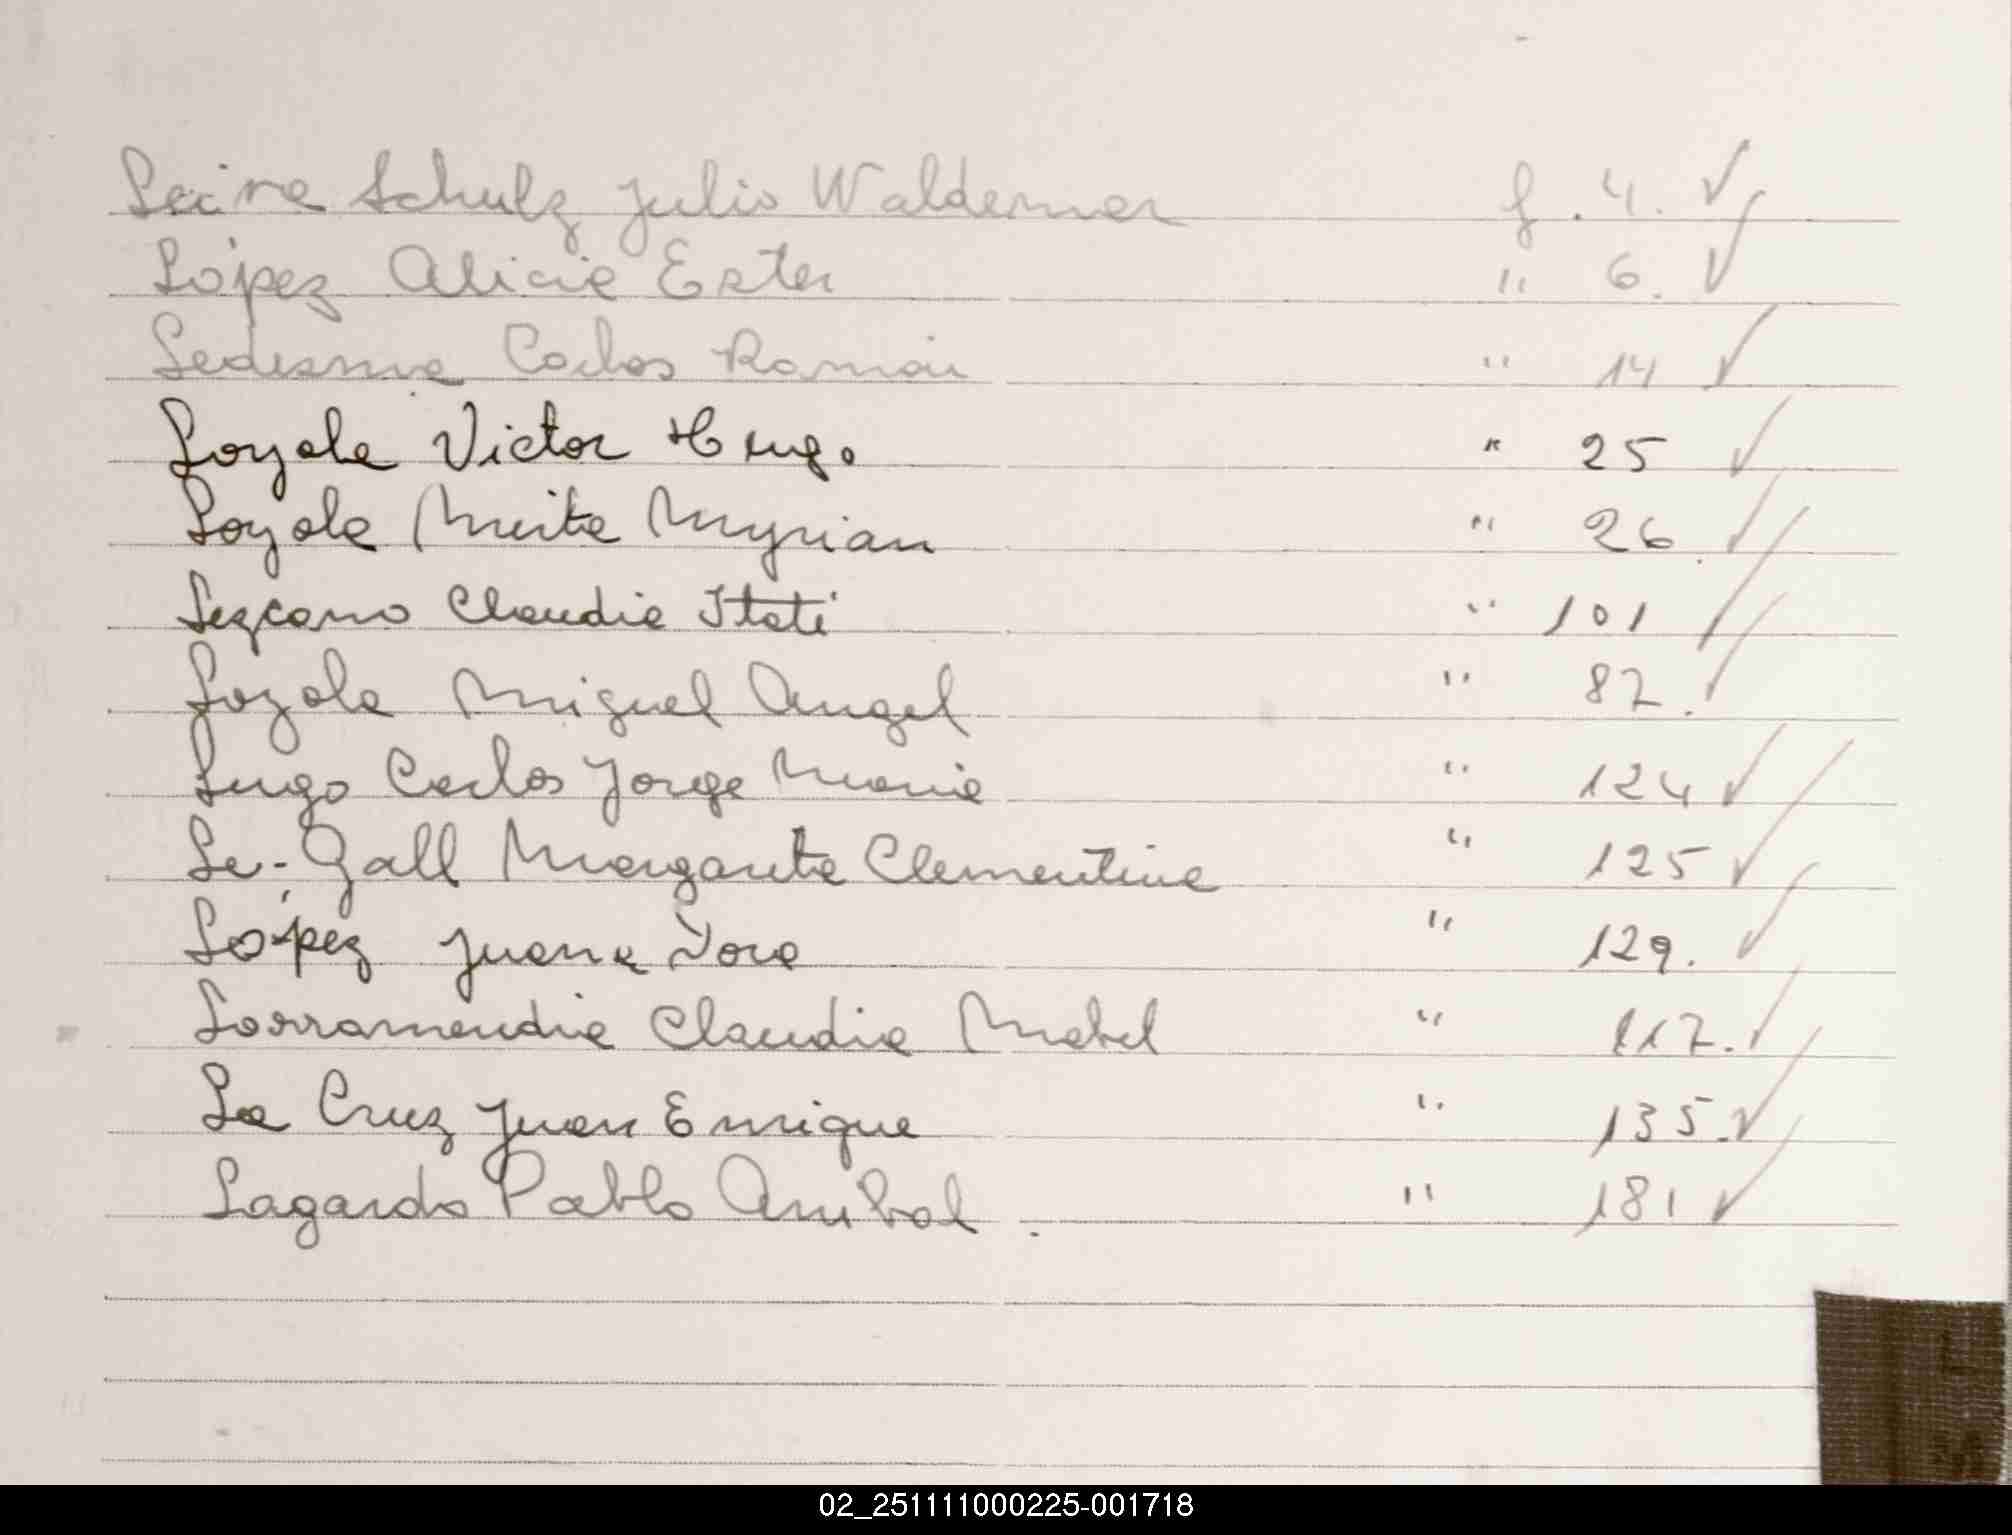 Leiva Schulz Julio Waldemar f. 4. ✓
López Alicia Ester " 6. ✓
Ledesma Carlos Ramón " 14 ✓
Loyola Victor Hugo " 25 ✓
Loyola Mirta Myrian " 26 ✓
Lezcano Claudia Itati " 101 ✓
Loyola Miguel Angel " 87. ✓
Lugo Carlos Jorge Maria " 124 ✓
Le-Gall Margarita Clementina " 125 ✓
López Juana " 129. ✓
Larramendia Claudia Mabel " 117. ✓
La Cruz Juan Enrique " 135. ✓
Lagardo Pablo Anibal. " 181 ✓
02_251111000225-001718